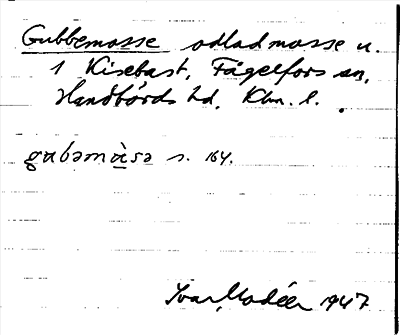 Gubbemosse odlad mosse u.
1 Kisebast, Fågelfors sn,
Handbörds hd, Klm. l.
gubəmɑ̀sə s. 164.
Ivar Modéer 1947